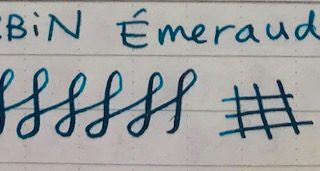 BiN Émeraud